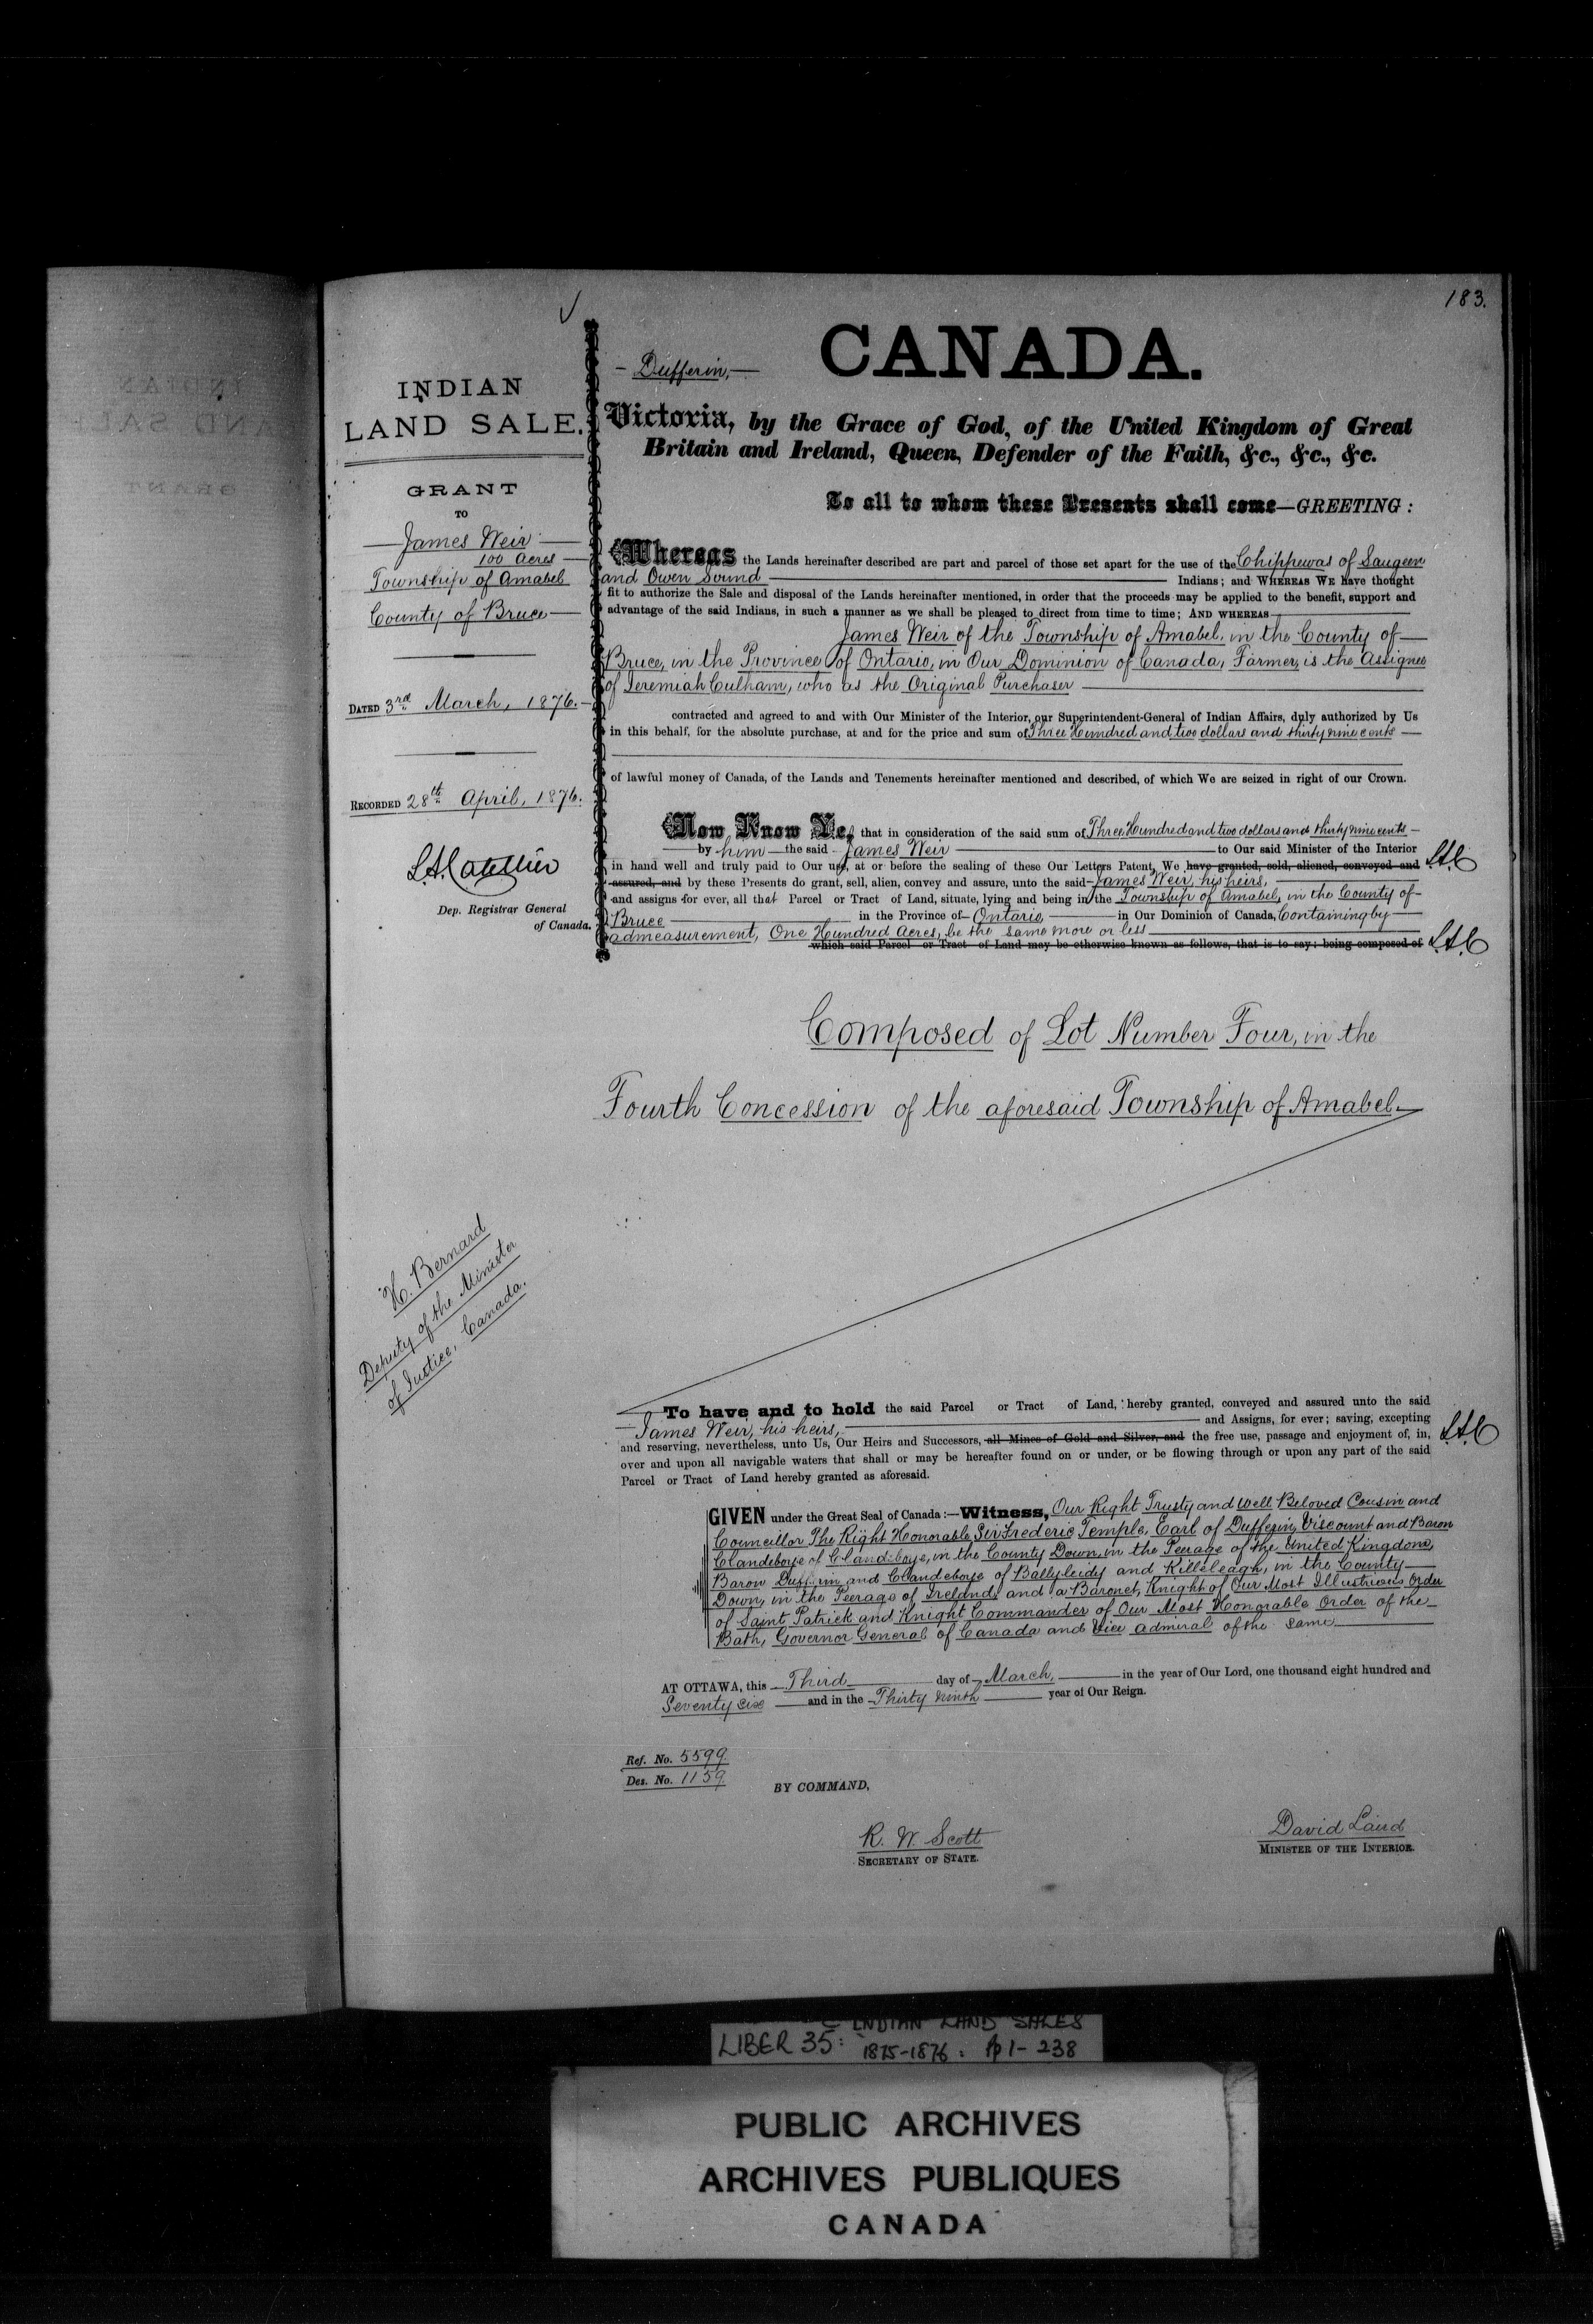 183.
INDIAN
LAND SALE.
GRANT
TO
James Weir
100 Acres
Township of Amabel
County of Bruce
DATED 3rd March, 1876.
RECORDED 28th April, 1876.
Dep. Registrar General
of Canada.
H. Bernard
Deputy of the Minister
of Justice, Canada.
Dufferin,
CANADA.
Victoria, by the Grace of God, of the United Kingdom of Great
Britain and Ireland, Queen, Defender of the Faith, &c., &c., &c.
To all to whom these Presents shall come—GREETING:
Whereas the Lands hereinafter described are part and parcel of those set apart for the use of the Chippewas of Saugeen
and Owen Sound Indians; and WHEREAS WE have thought
fit to authorize the Sale and disposal of the Lands hereinafter mentioned, in order that the proceeds may be applied to the benefit, support and
advantage of the said Indians, in such a manner as we shall be pleased to direct from time to time; AND WHEREAS
James Weir of the Township of Amabel, in the County of
Bruce, in the Province of Ontario, in Our Dominion of Canada, Farmer, is the Assignee
of Jeremiah Culham, who as the Original Purchaser
contracted and agreed to and with Our Minister of the Interior, our Superintendent-General of Indian Affairs, duly authorized by Us
in this behalf, for the absolute purchase, at and for the price and sum of Three Hundred and two dollars and thirty nine cents
of lawful money of Canada, of the Lands and Tenements hereinafter mentioned and described, of which We are seized in right of our Crown.
Now Know Ye, that in consideration of the said sum of Three Hundred and two dollars and thirty nine cents
by him the said James Weir to Our said Minister of the Interior
in hand well and truly paid to Our use, at or before the sealing of these Our Letters Patent, We have granted, sold, aliened, conveyed and
assured, and by these Presents do grant, sell, alien, convey and assure, unto the said James Weir, his heirs,
and assigns for ever, all that Parcel or Tract of Land, situate, lying and being in the Township of Amabel, in the County of
Bruce in the Province of Ontario, in Our Dominion of Canada, Containing by
admeasurement, One Hundred Acres, be the same more or less
which said Parcel or Tract of Land may be otherwise known as follows, that is to say: being composed of
Composed of Lot Number Four, in the
Fourth Concession of the aforesaid Township of Amabel.
To have and to hold the said Parcel or Tract of Land, hereby granted, conveyed and assured unto the said
James Weir, his heirs, and Assigns, for ever; saving, excepting
and reserving, nevertheless, unto Us, Our Heirs and Successors, all Mines of Gold and Silver, and the free use, passage and enjoyment of, in,
over and upon all navigable waters that shall or may be hereafter found on or under, or be flowing through or upon any part of the said
Parcel or Tract of Land hereby granted as aforesaid.
GIVEN under the Great Seal of Canada:—Witness, Our Right Trusty and Well Beloved Cousin and
Councillor The Right Honorable Sir Frederic Temple, Earl of Dufferin, Viscount and Baron
Clandeboye of Clandeboye, in the County Down, in the Peerage of the United Kingdom,
Baron Dufferin and Clandeboye of Ballyleidy and Killeleagh, in the County
Down, in the Peerage of Ireland, and a Baronet, Knight of Our Most Illustrious Order
of Saint Patrick and Knight Commander of Our Most Honorable Order of the
Bath, Governor General of Canada and Vice Admiral of the same
AT OTTAWA, this Third day of March, in the year of Our Lord, one thousand eight hundred and
Seventy six and in the Thirty ninth year of Our Reign.
Ref. No. 5599.
Des. No. 1159.
BY COMMAND,
R. W. Scott
SECRETARY OF STATE.
David Laird
MINISTER OF THE INTERIOR.
INDIAN LAND SALES
LIBER 35: 1875-1876: pp 1-238
PUBLIC ARCHIVES
ARCHIVES PUBLIQUES
CANADA